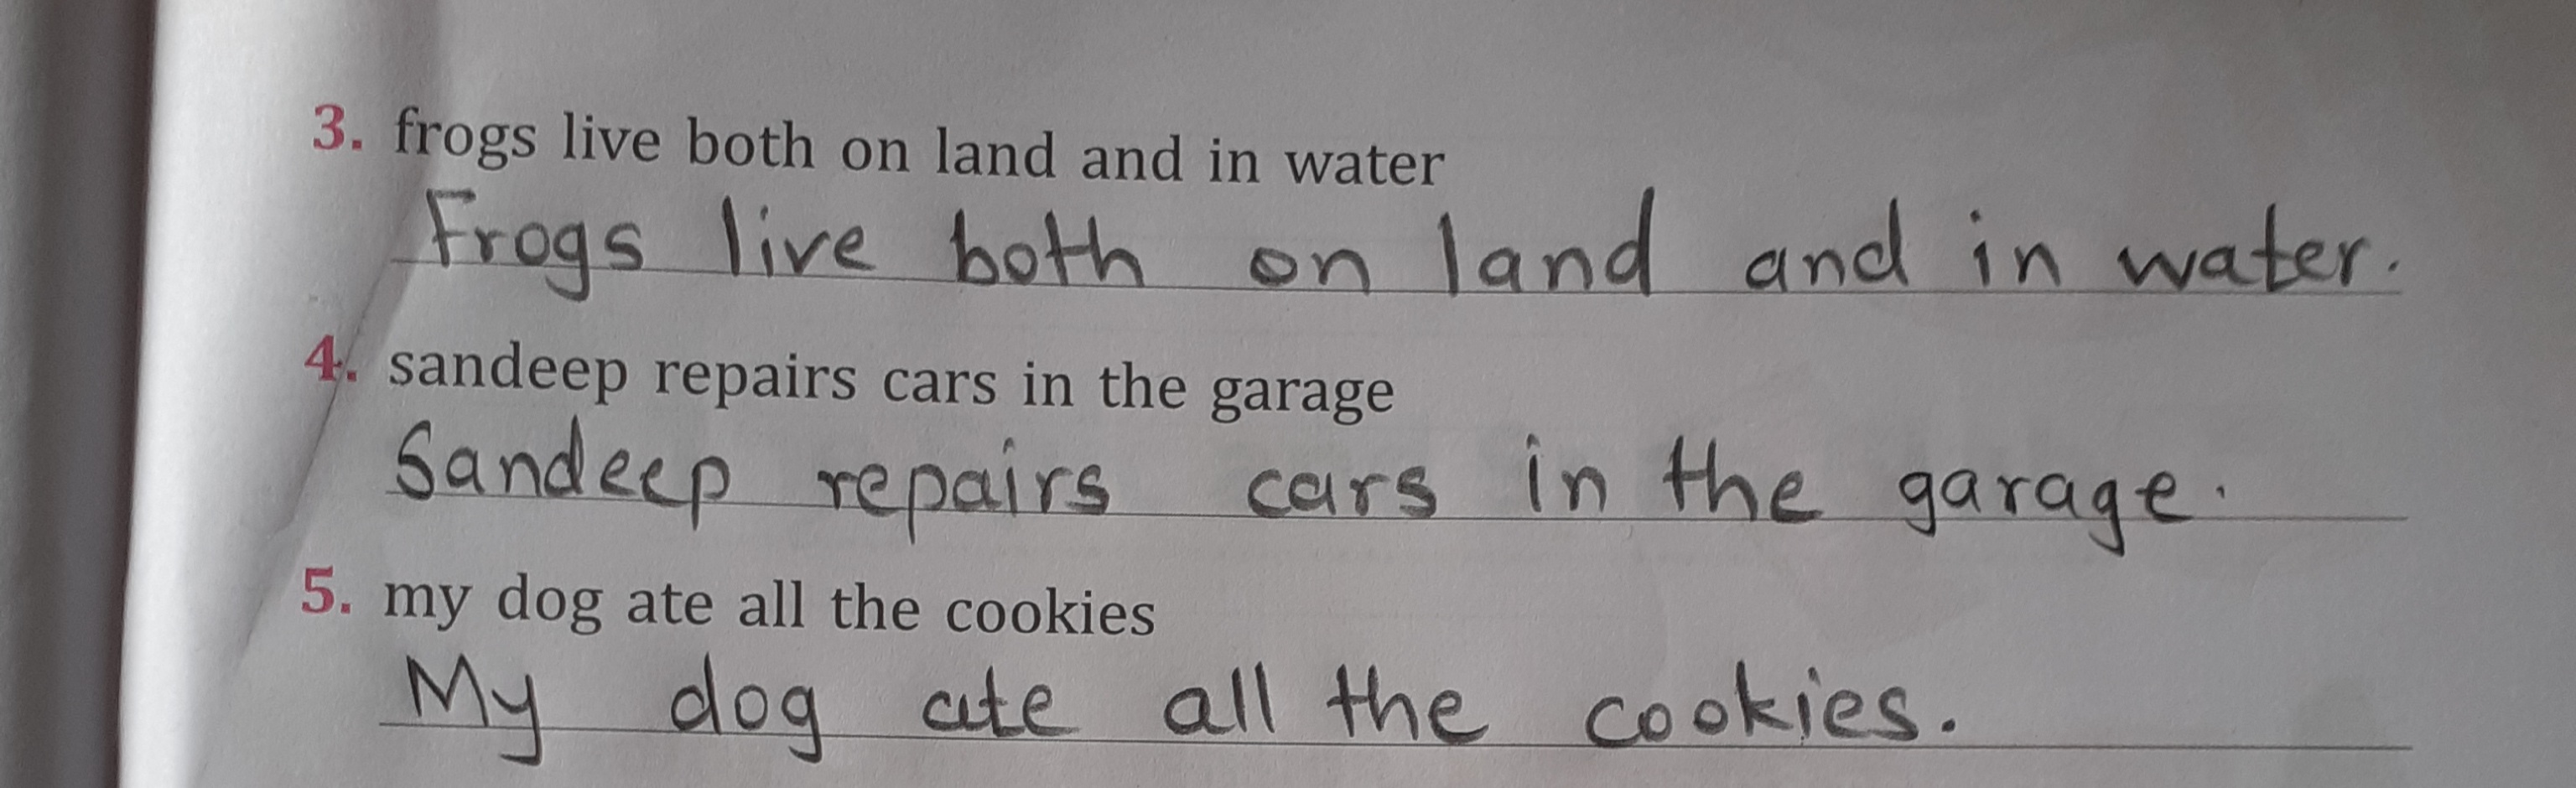 3. frogs live both on land and in water
Frogs live both on land and in water.
4. sandeep repairs cars in the garage
Sandeep repairs cars in the garage.
5. my dog ate all the cookies
My dog ate all the cookies.